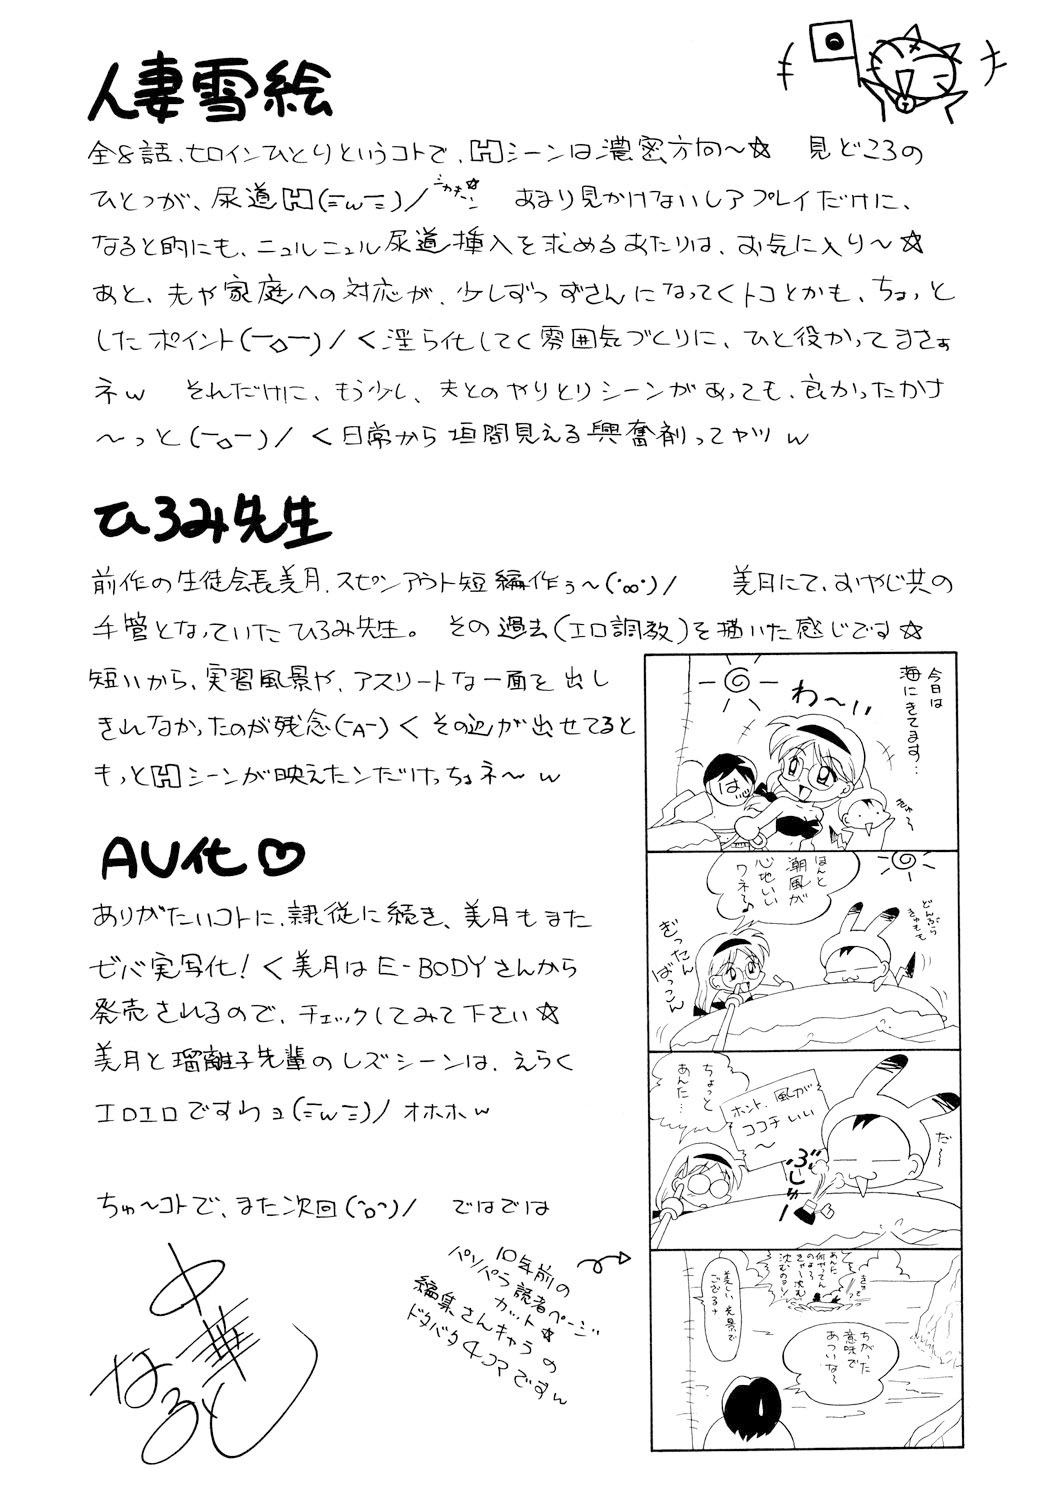 人妻雪絵
全8話、ヒロインひとりというコトで、Hシーンは濃密方向〜☆　見どころの
ひとつが、尿道H(ﾆwﾆ)/ジカキーン　あまり見かけないレアプレイだけに、
なると的にも、ニュルニュル尿道挿入を求めるあたりは、お気に入り〜☆
あと、夫や家庭への対応が、少しずつずさんになってくトコとかも、ちょっと
したポイント(ー△ー)/く淫ら化してく雰囲気づくりに、ひと役かってまさぁ
ネw　それだけに、もう少し、夫とのやりとりシーンがあっても、良かったかナ
〜っと(ー△ー)/く日常から垣間見える興奮剤ってヤツw
ひろみ先生
前作の生徒会長美月、スピンアウト短編作ぅ〜(・∞・)/　美月にて、おやじ共の
手管となっていたひろみ先生。その過去(エロ調教)を描いた感じです☆
短いから、実習風景や、アスリートな一面を出し
きれなかったのが残念(ーAー)くその辺が出せてると
もっとHシーンが映えたンだけっちょネ〜w
AV化♡
ありがたいコトに、隷従に続き、美月もまた
ゼバ実写化！く美月はE-BODYさんから
発売されるので、チェックしてみて下さい☆
美月と瑠離子先輩のレズシーンは、えらく
エロエロですわョ(ﾆwﾆ)/オホホw
ちゅ〜コトで、また次回(^o^)/　ではでは
中華
なると
10年前の
パソパラ読者ページ
カット☆
編集さんキャラの
ドタバタ4コマですw
今日は
海にきてます…
わ〜い
は〜
きゃ〜
ほんと
潮風が
心地いい
ワネ〜♪
どんぶら
ぎったん
ばっこん
ちょっと
あんた…
ホント、風が
ココチいい
〜
だ〜
ぶしゅー
あんた
何やってん
のよ〜
きゃー沈む
沈むのヨン
美しい光景で
ござるナ
ちがった
意味で
あついな〜